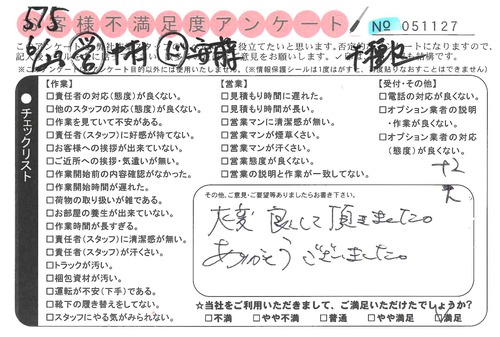 575
お客様不満足度アンケート
No 051127
千葉也
【作業】
□責任者の対応(態度)が良くない。
□他のスタッフの対応(態度)が良くない。
□作業を見ていて不安がある。
□責任者(スタッフ)に好感が持てない。
□お客様への挨拶が出来ていない。
□ご近所への挨拶・気遣いが無い。
□作業開始前の内容確認がなかった。
□作業開始時間が遅れた。
□荷物の取り扱いが雑である。
□お部屋の養生が出来ていない。
□作業時間が長すぎる。
□責任者(スタッフ)に清潔感が無い。
□責任者(スタッフ)が汗くさい。
□トラックが汚い。
□梱包資材が汚い。
□運転が不安(下手)である。
□靴下の履き替えをしてない。
□スタッフにやる気がみられない。
【営業】
□見積もり時間に遅れた。
□見積もり時間が長い。
□営業マンに清潔感が無い。
□営業マンが煙草くさい。
□営業マンが汗くさい。
□営業態度が良くない。
□営業の説明と作業が一致してない。
【受付・その他】
□電話の対応が良くない。
□オプション業者の説明
・作業が良くない。
□オプション業者の対応
(態度)が良くない。
チェックリスト
その他、ご意見・ご要望等ありましたらお書き下さい。
大変 良くして頂きました。
ありがとう ございました。
☆当社をご利用いただきまして、ご満足いただけたでしょうか?
□不満 □やや不満 □普通 □やや満足 □満足